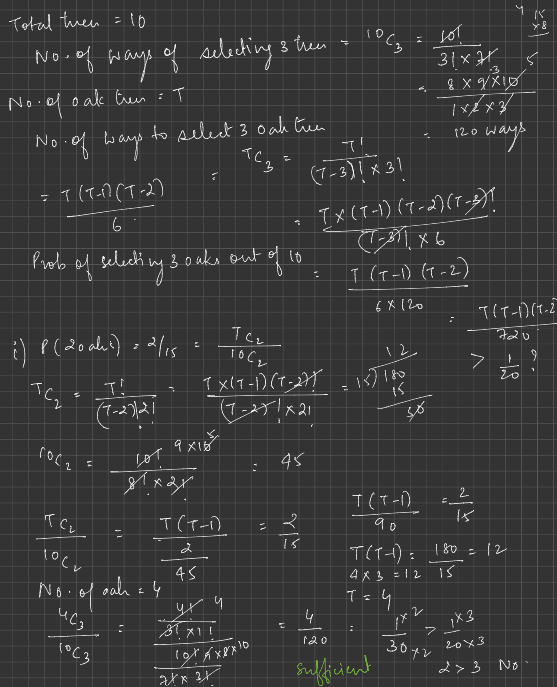 Total trees = 10
No. of ways of selecting 3 trees = 10C3 = 10! / (3! × 7!)
15 × 8
= (8 × 9 × 10) / (1 × 2 × 3)
3 5 4
= 120 ways
No. of oak trees = T
No. of ways to select 3 oak trees
= TC3 = T! / ((T-3)! × 3!)
= T(T-1)(T-2) / 6
= T × (T-1)(T-2)(T-3)! / ((T-3)! × 6)
Prob of selecting 3 oaks out of 10 = T(T-1)(T-2) / (6 × 120)
= T(T-1)(T-2 / 720
> 1/20 ?
i) P(2 oaks) = 2/15 = TC2 / 10C2
TC2 = T! / ((T-2)! 2!) = T × (T-1)(T-2)! / ((T-2)! × 2!)
= 15)180
12
15
30
10C2 = 10! / (8! × 2!) = 45
9 × 10 5
TC2 / 10C2 = (T(T-1) / 2) / 45 = 2/15
T(T-1) / 90 = 2/15
T(T-1) = 180/15 = 12
4 × 3 = 12
T = 4
No. of oak = 4
4C3 / 10C3 = (4! / (3! × 1!)) / (10! / (7! × 3!)) = 4/120 = 1×2 / 30×2 > 1×3 / 20×3
2 > 3 No.
sufficient